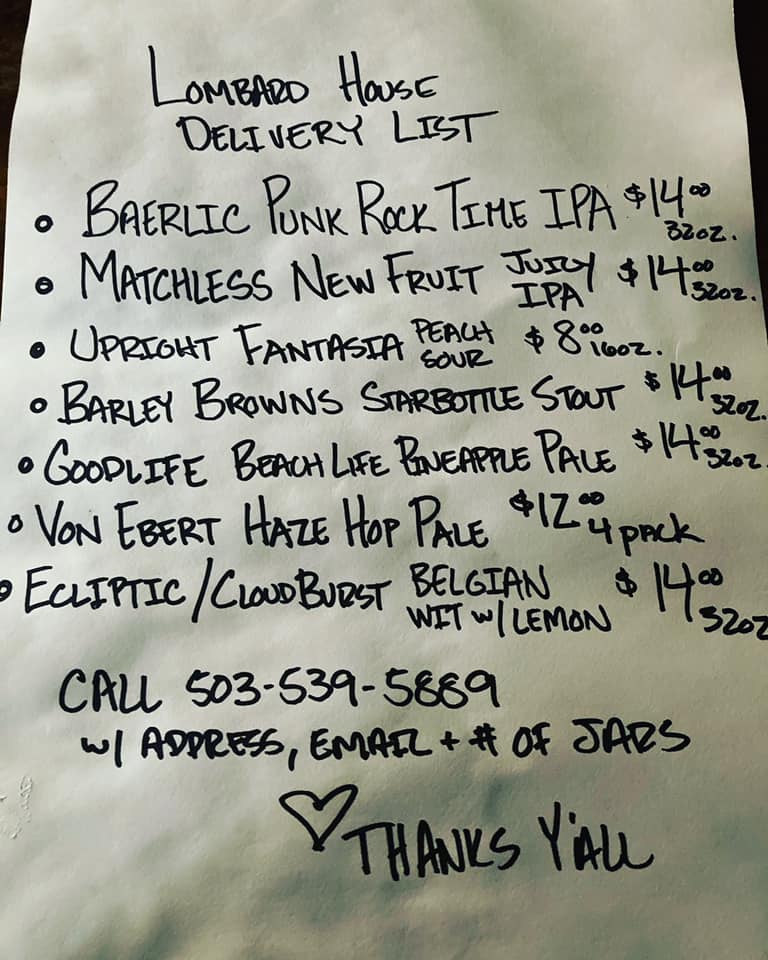 LOMBARD HOUSE
DELIVERY LIST
• BAERLIC PUNK ROCK TIME IPA $14.00 32oz.
• MATCHLESS NEW FRUIT JUICY IPA $14.00 32oz.
• UPRIGHT FANTASIA PEACH SOUR $8.00 16oz.
• BARLEY BROWNS STARBOTTLE STOUT $14.00 32oz.
• GOODLIFE BEACH LIFE PINEAPPLE PALE $14.00 32oz
• VON EBERT HAZE HOP PALE $12.00 4 PACK
• ECLIPTIC/CLOUDBURST BELGIAN WIT w/LEMON $14.00 32oz
CALL 503-539-5889
w/ ADDRESS, EMAIL + # OF JARS
♡ THANKS Y'ALL